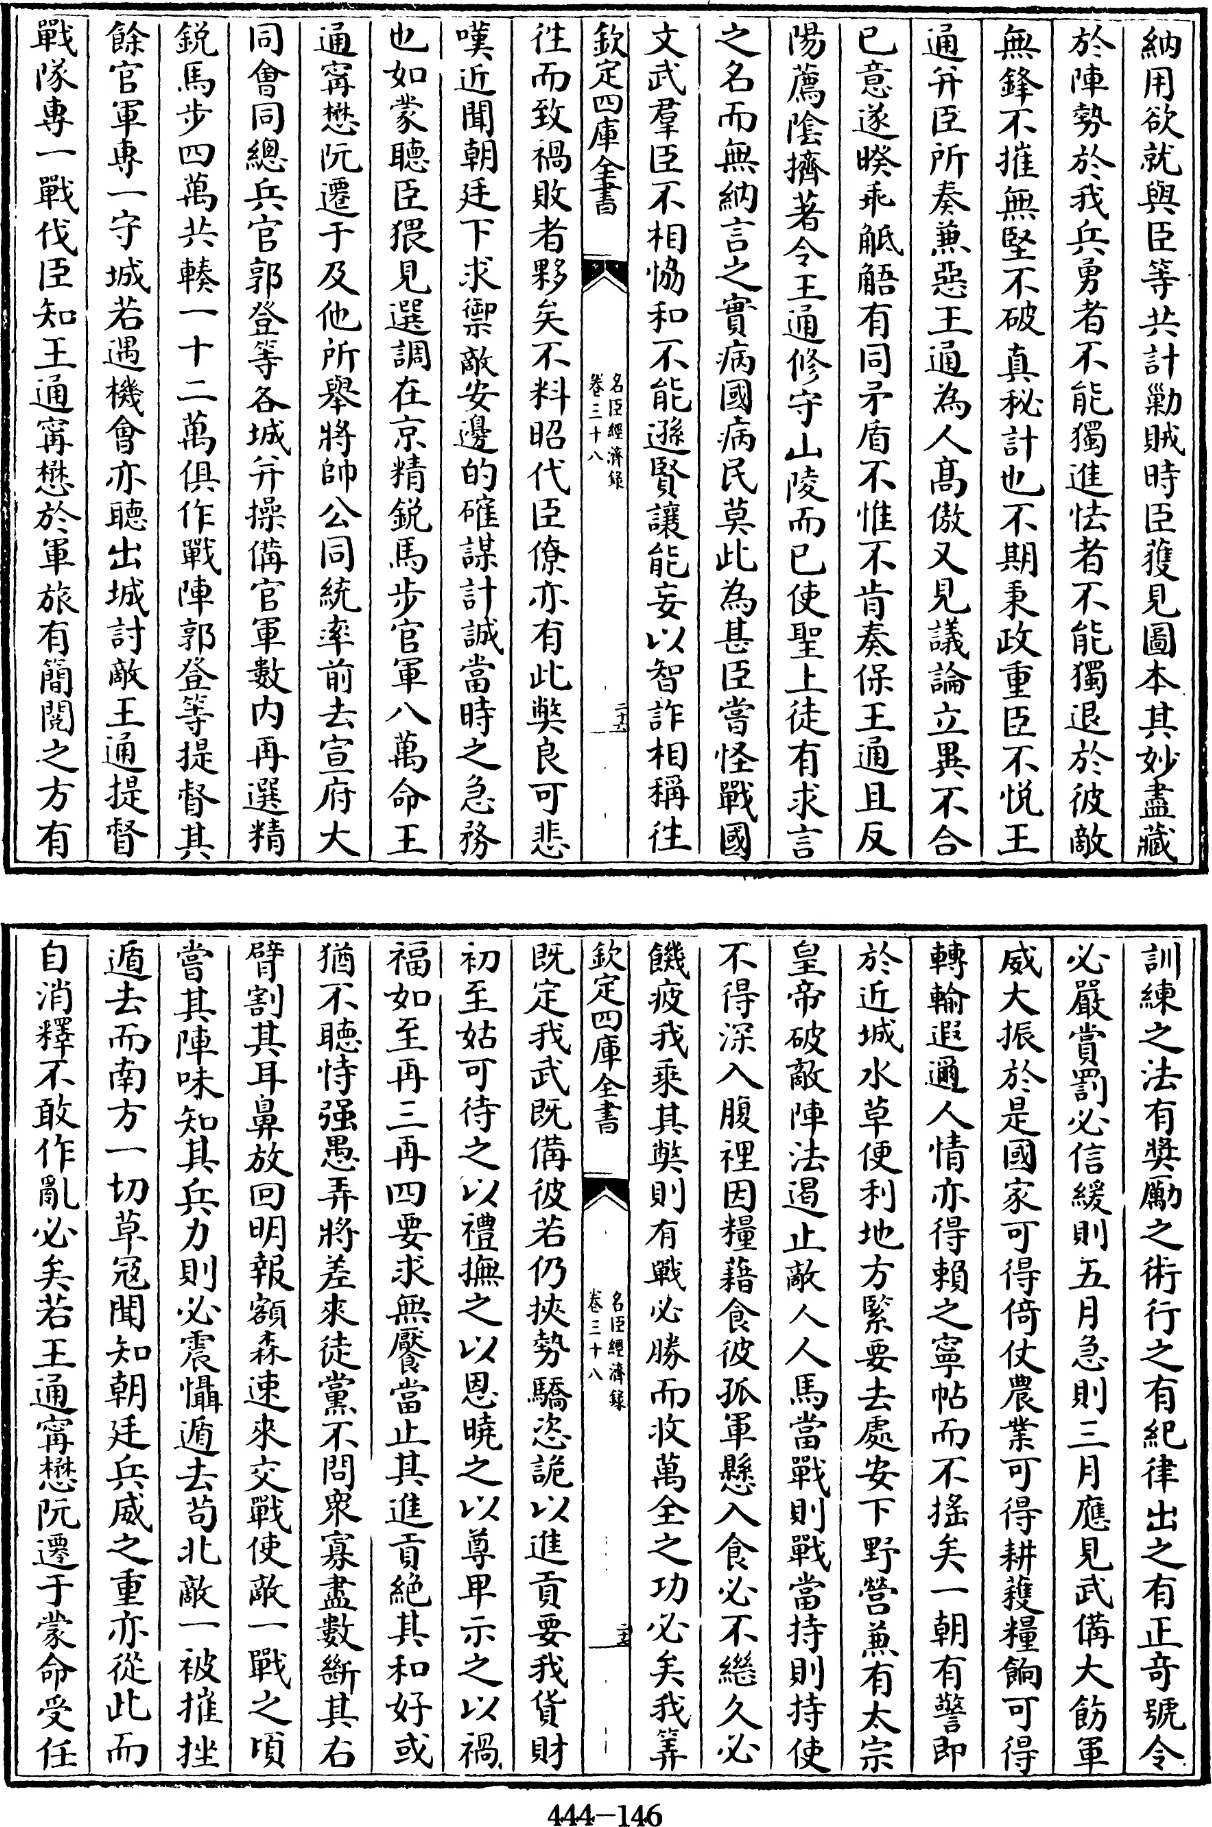 納用欲就與臣等共計勦賊時臣獲見圖本其妙盡藏
於陣勢於我兵勇者不能獨進怯者不能獨退於彼敵
無鋒不摧無堅不破真秘計也不期秉政重臣不悦王
通并臣所奏兼惡王通為人髙傲又見議論立異不合
已意遂暌乖觝牾有同矛盾不惟不肯奏保王通且反
陽薦陰擠著令王通修守山陵而已使聖上徒有求言
之名而無納言之實病國病民莫此為甚臣嘗怪戰國
文武羣臣不相恊和不能遜賢讓能妄以智詐相稱徃
欽定四庫全書
名臣經濟録
卷三十八
二十六
徃而致禍敗者夥矣不料昭代臣僚亦有此弊良可悲
嘆近聞朝廷下求禦敵安邊的確謀計誠當時之急務
也如蒙聽臣猥見選調在京精鋭馬步官軍八萬命王
通甯懋阮遷于及他所舉將帥公同統率前去宣府大
同會同總兵官郭登等各城并操備官軍數内再選精
鋭馬步四萬共輳一十二萬俱作戰陣郭登等提督其
餘官軍専一守城若遇機會亦聽出城討敵王通提督
戰隊専一戰伐臣知王通甯懋於軍旅有簡閲之方有
訓練之法有奬勵之術行之有紀律出之有正竒號令
必嚴賞罰必信緩則五月急則三月應見武備大飭軍
威大振於是國家可得倚仗農業可得耕穫糧餉可得
轉輸遐邇人情亦得賴之寧帖而不揺矣一朝有警即
於近城水草便利地方緊要去處安下野營兼有太宗
皇帝破敵陣法遏止敵人人馬當戰則戰當持則持使
不得深入腹裡因糧藉食彼孤軍懸入食必不繼久必
饑疲我乘其弊則有戰必勝而收萬全之功必矣我筭
欽定四庫全書
名臣經濟録
卷三十八
二十七
既定我武既備彼若仍挾勢驕恣詭以進貢要我貨財
初至姑可待之以禮撫之以恩曉之以尊卑示之以禍
福如至再三再四要求無饜當止其進貢絶其和好或
猶不聽恃强愚弄將差來徒黨不問衆寡盡數斷其右
臂割其耳鼻放回明報額森速來交戰使敵一戰之頃
嘗其陣味知其兵力則必震懾遁去茍北敵一被摧挫
遁去而南方一切草冦聞知朝廷兵威之重亦從此而
自消釋不敢作亂必矣若王通甯懋阮遷于蒙命受任
444-146